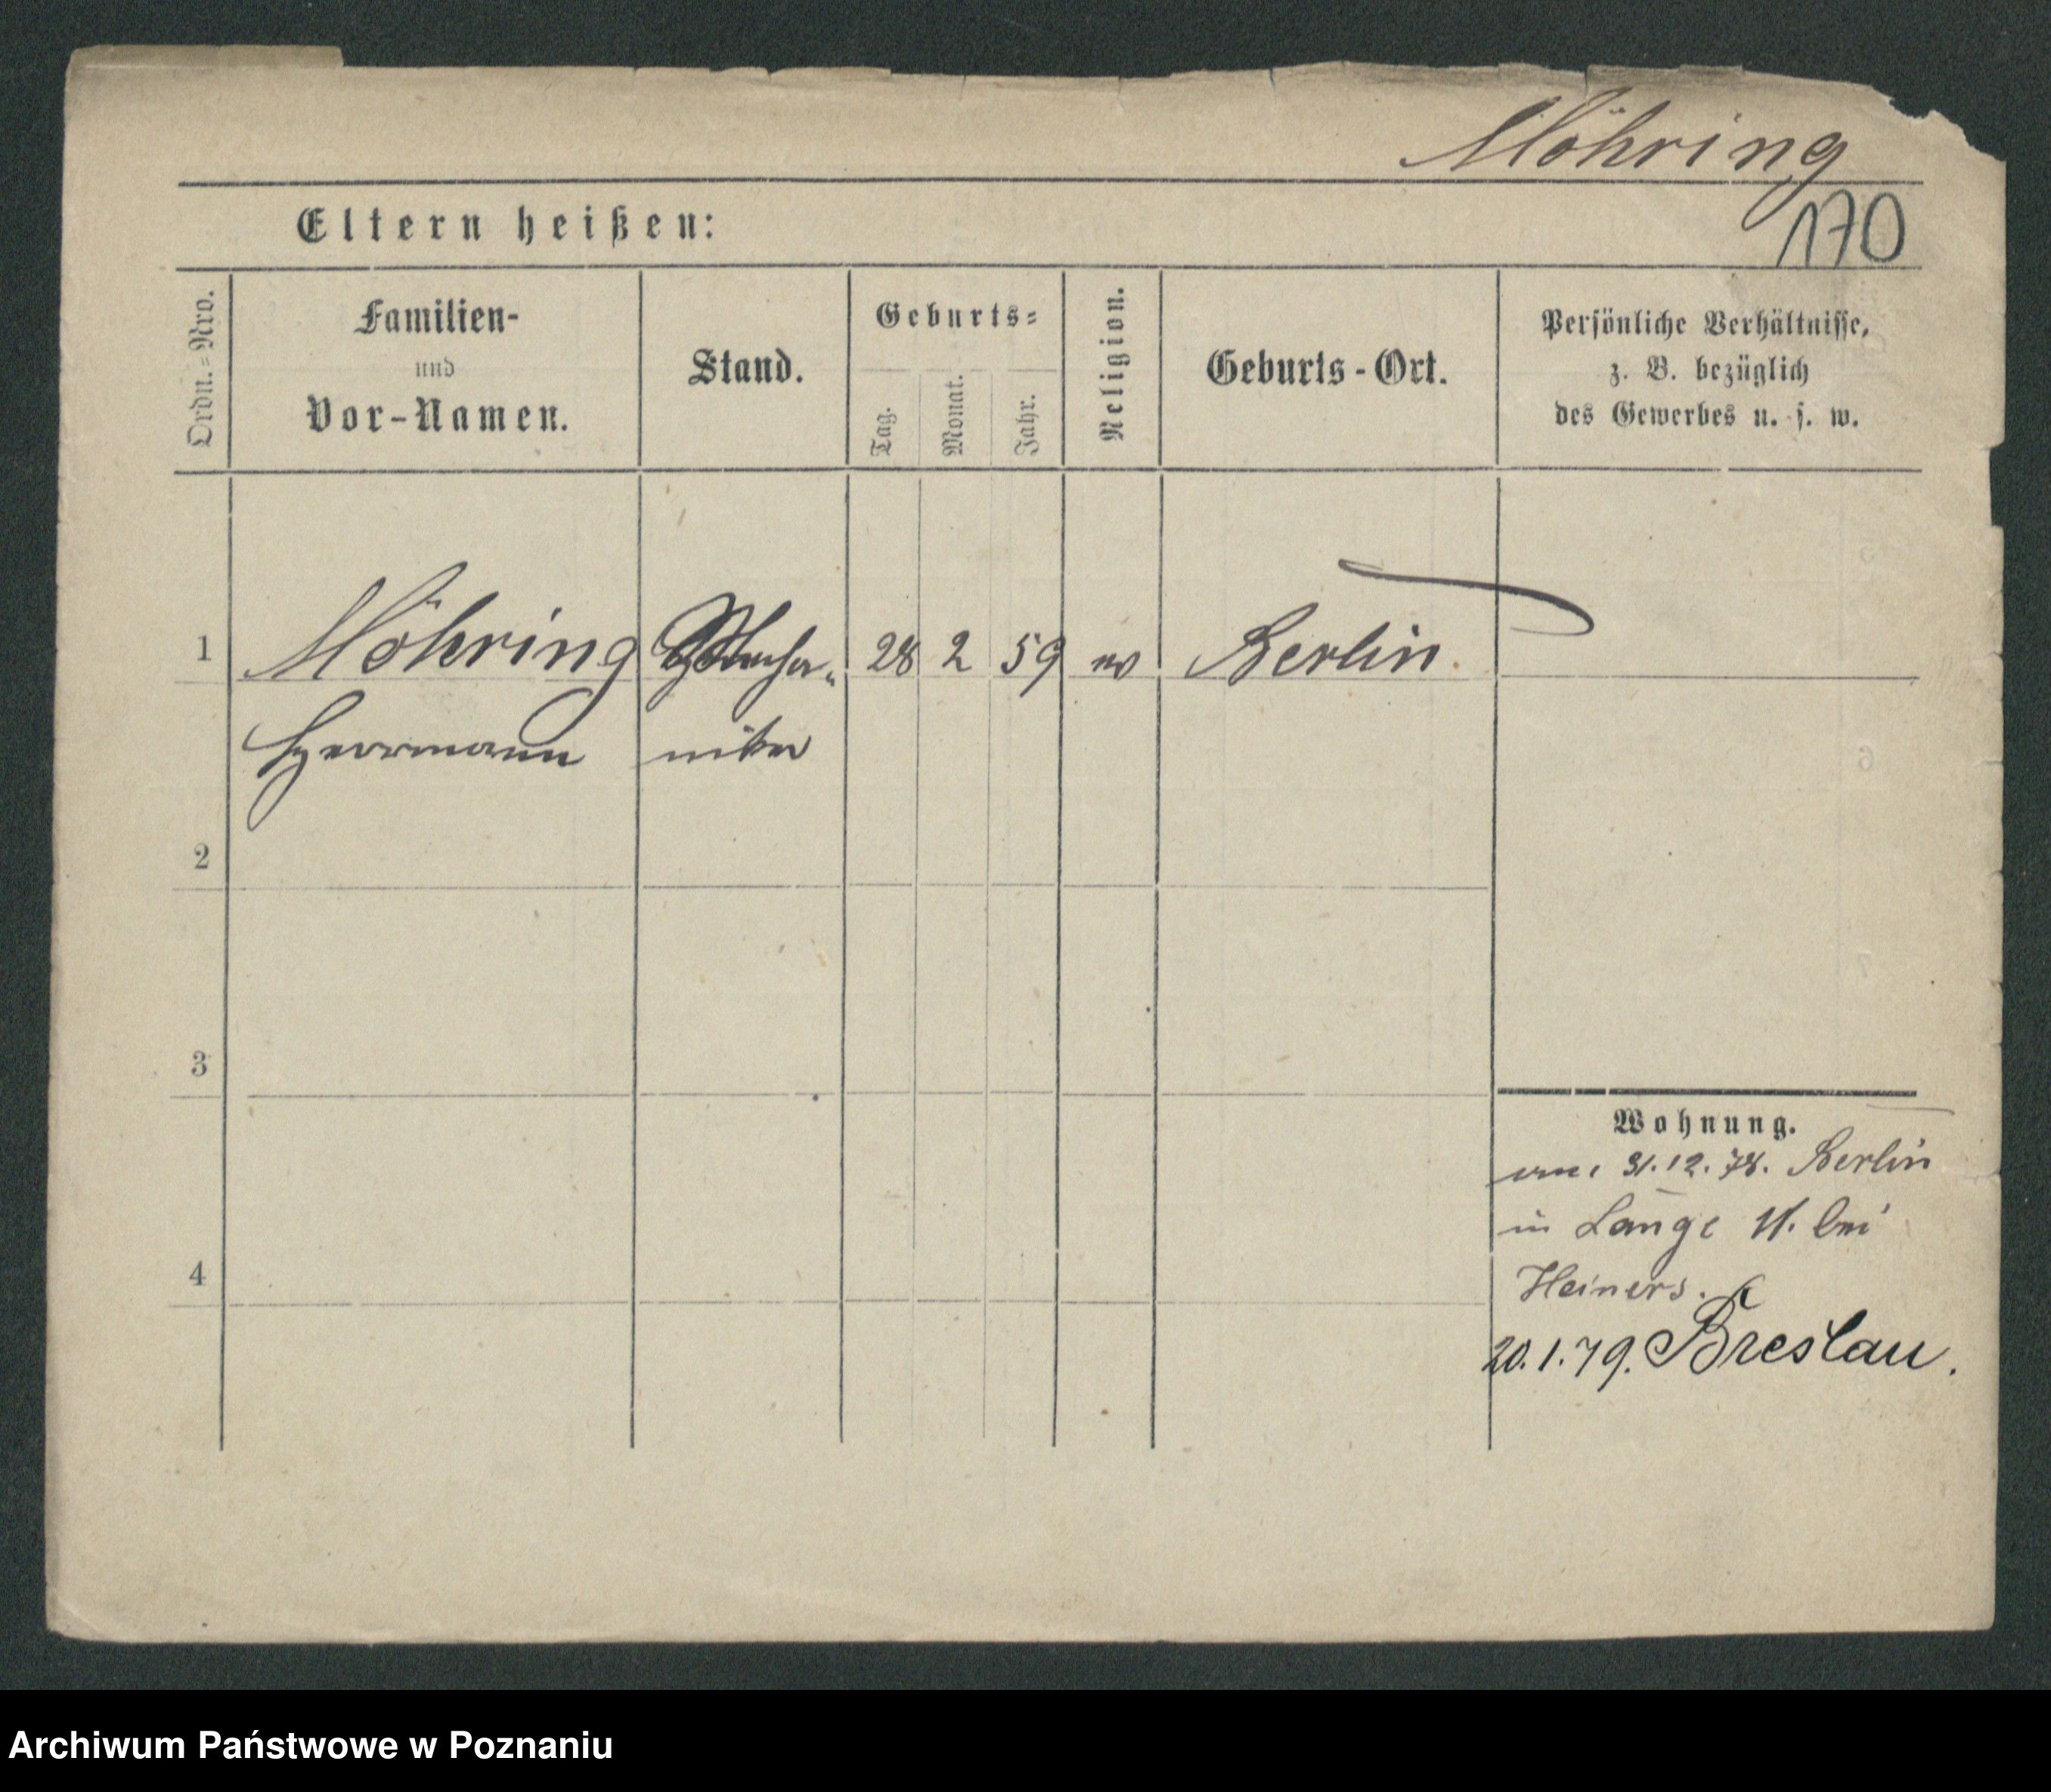 Möhring
170
Eltern heißen:
Ordn.=Nro.
Familien-
und
Vor-Namen.
Stand.
Geburts=
Tag.
Monat.
Jahr.
Religion.
Geburts-Ort.
Persönliche Verhältnisse,
z. B. bezüglich
des Gewerbes u. s. w.
1 Möhring Mecha- 28 2 59 ev Berlin
Herrmann niker
2
3
4
Wohnung.
31.12.78. Berlin
in Lange 11. bei
Heiners.
20.1.79. Breslau.
Archiwum Państwowe w Poznaniu